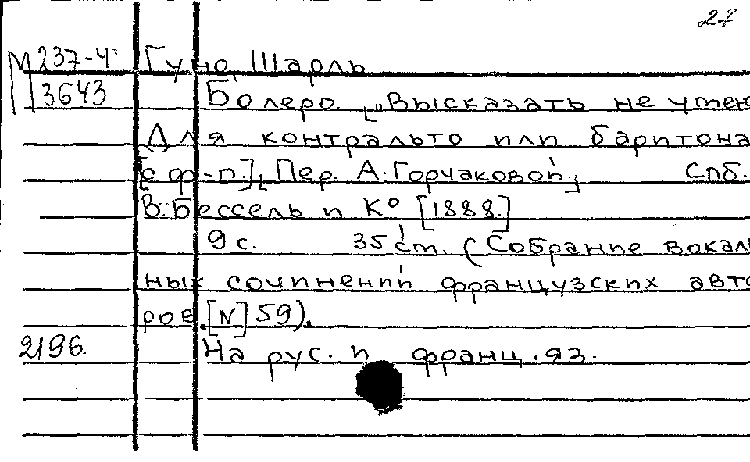 27
М 237-4 Гуно, Шарль
3643 Болеро. „Высказать не умею
Для контральто или баритона
[с ф-п.], Пер. А. Горчаковой, Спб.
В. Бессель и К° [1888.]
9 с. 35 см. (Собрание вокаль
ных сочинений французских авто
ров. [N] 59).
2196. На рус. и франц. яз.